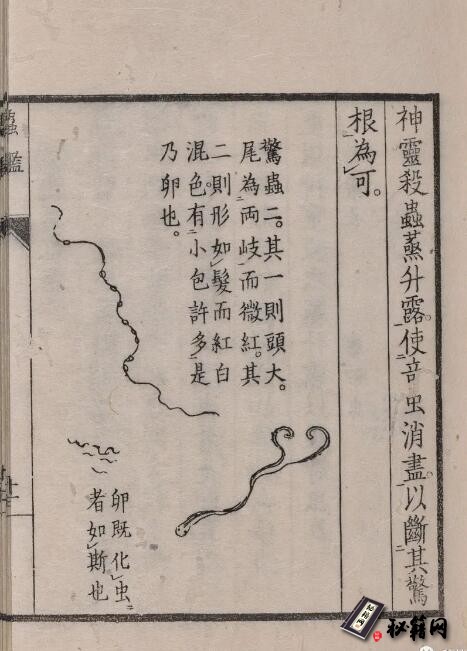 神靈殺蟲蒸升露。使音虫消盡。以斷其驚
根為可。
驚蟲二。其一則頭大。
尾為両岐而微紅。其
二則形如髮而紅白
混色。有小包許多。是
乃卵也。
卵既化虫
者如斯也
蟲鑑
秘籍网